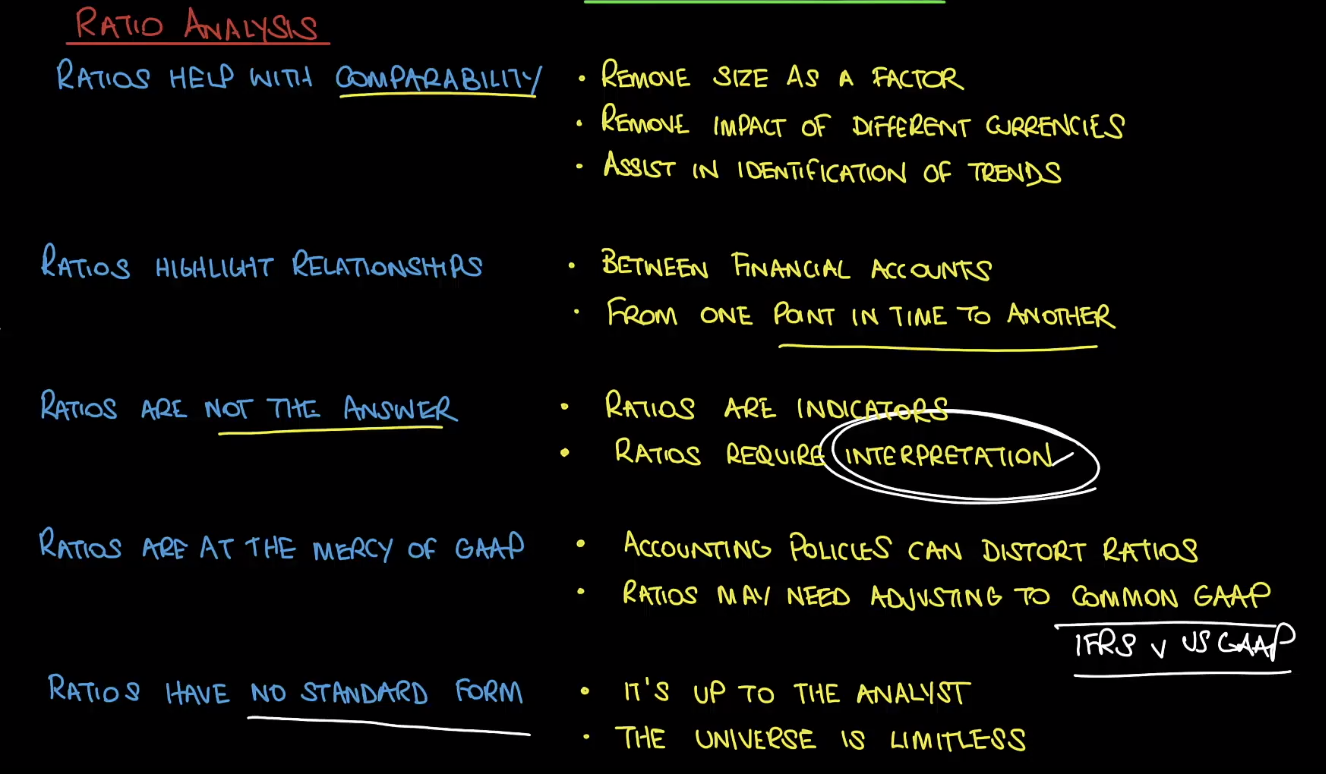 RATIO ANALYSIS
RATIOS HELP WITH COMPARABILITY
• REMOVE SIZE AS A FACTOR
• REMOVE IMPACT OF DIFFERENT CURRENCIES
• ASSIST IN IDENTIFICATION OF TRENDS
RATIOS HIGHLIGHT RELATIONSHIPS
• BETWEEN FINANCIAL ACCOUNTS
• FROM ONE POINT IN TIME TO ANOTHER
RATIOS ARE NOT THE ANSWER
• RATIOS ARE INDICATORS
• RATIOS REQUIRE INTERPRETATION
RATIOS ARE AT THE MERCY OF GAAP
• ACCOUNTING POLICIES CAN DISTORT RATIOS
• RATIOS MAY NEED ADJUSTING TO COMMON GAAP
IFRS v US GAAP
RATIOS HAVE NO STANDARD FORM
• IT'S UP TO THE ANALYST
• THE UNIVERSE IS LIMITLESS